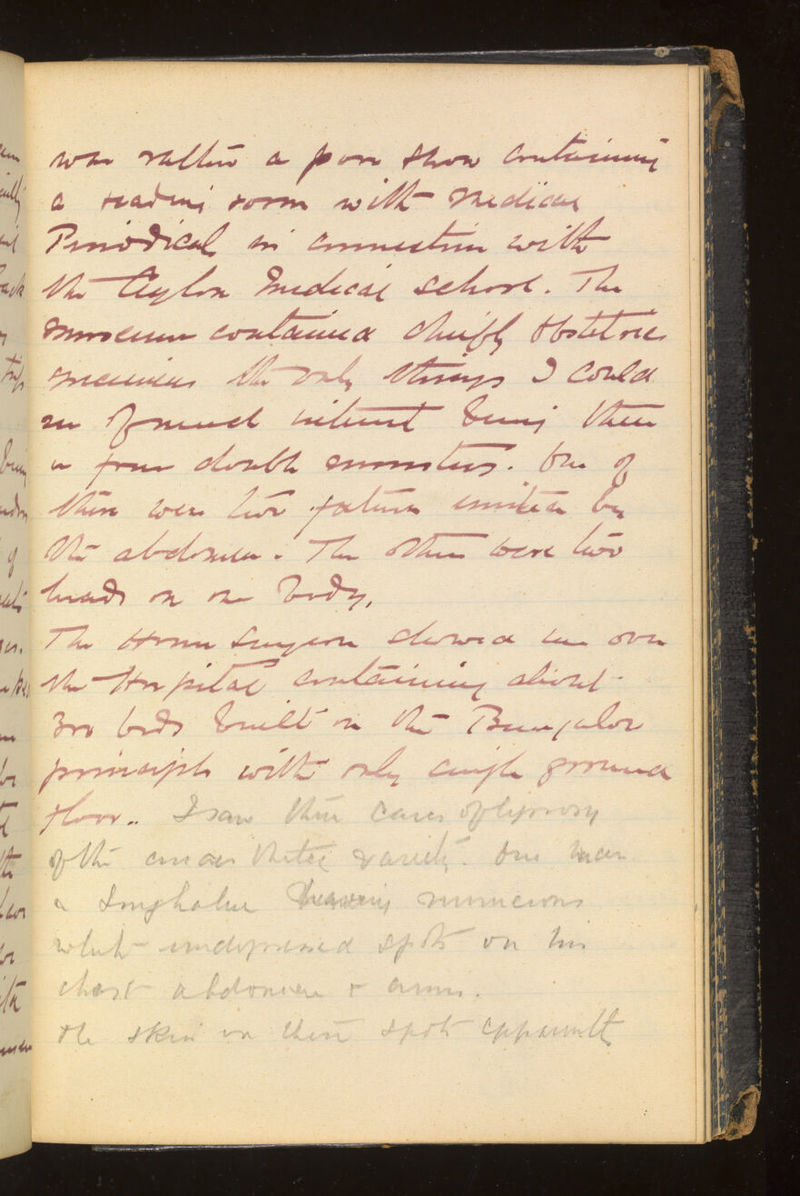 was rather a poor show containing
a reading room with medical
Periodicals in connection with
the Ceylon Medical School. The
museum contained chiefly obstetric
specimens the only things I could
see of much interest being three
or four double monsters. One of
these were two foetuses united by
the abdomen. The others were two
heads on one body.
The House Surgeon showed me over
the Hospital containing about
300 beds built on the Bungalow
principle with only single ground
floor. I saw three cases of leprosy
of the anaesthetic variety. One was
a Singhalese having numerous
white undepressed spots on his
chest abdomen & arms.
The skin on these spots apparently